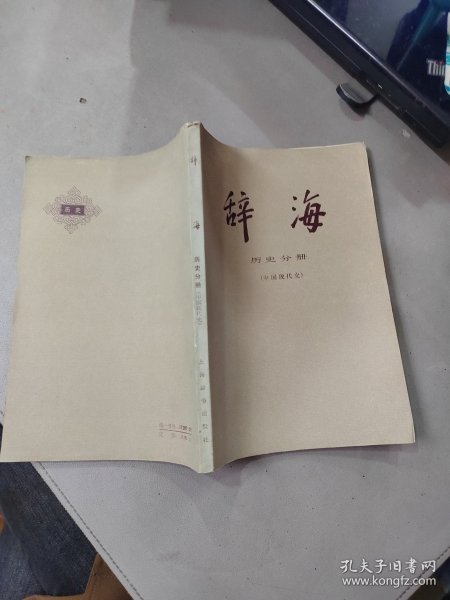 辞海
历史分册
(中国现代史)
辞 海
历史分册
(中国现代史)
上海辞书出版社
历史
Thin
孔夫子旧书网
www.kongfz.com